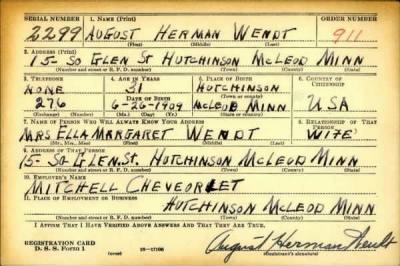 SERIAL NUMBER 1. NAME (Print) ORDER NUMBER
2299 AUGUST HERMAN WENDT 911
(First) (Middle) (Last)
2. ADDRESS (Print)
15- SO GLEN ST HUTCHINSON MCLEOD MINN
(Number and street or R. F. D. number) (Town) (County) (State)
3. TELEPHONE 4. AGE IN YEARS 5. PLACE OF BIRTH 6. COUNTRY OF CITIZENSHIP
NONE 31 HUTCHINSON
DATE OF BIRTH (Town or county)
276 6-26-1909 MCLEOD MINN USA
(Exchange) (No.) (Mo.) (Day) (Yr.) (State or country)
7. NAME OF PERSON WHO WILL ALWAYS KNOW YOUR ADDRESS 8. RELATIONSHIP OF THAT PERSON
MRS ELLA MARGARET WENDT WIFE
(Mr., Mrs., Miss) (First) (Middle) (Last)
9. ADDRESS OF THAT PERSON
15- SO GLEN.ST. HUTCHINSON MCLEOD MINN
(Number and street or R. F. D. number) (Town) (County) (State)
10. EMPLOYER'S NAME
MITCHELL CHEVEORLET
11. PLACE OF EMPLOYMENT OR BUSINESS
HUTCHINSON MCLEOD MINN
(Number and street or R. F. D. number) (Town) (County) (State)
I AFFIRM THAT I HAVE VERIFIED ABOVE ANSWERS AND THAT THEY ARE TRUE.
REGISTRATION CARD
D. S. S. Form 1 (over) August Herman Wendt
(Registrant's signature)